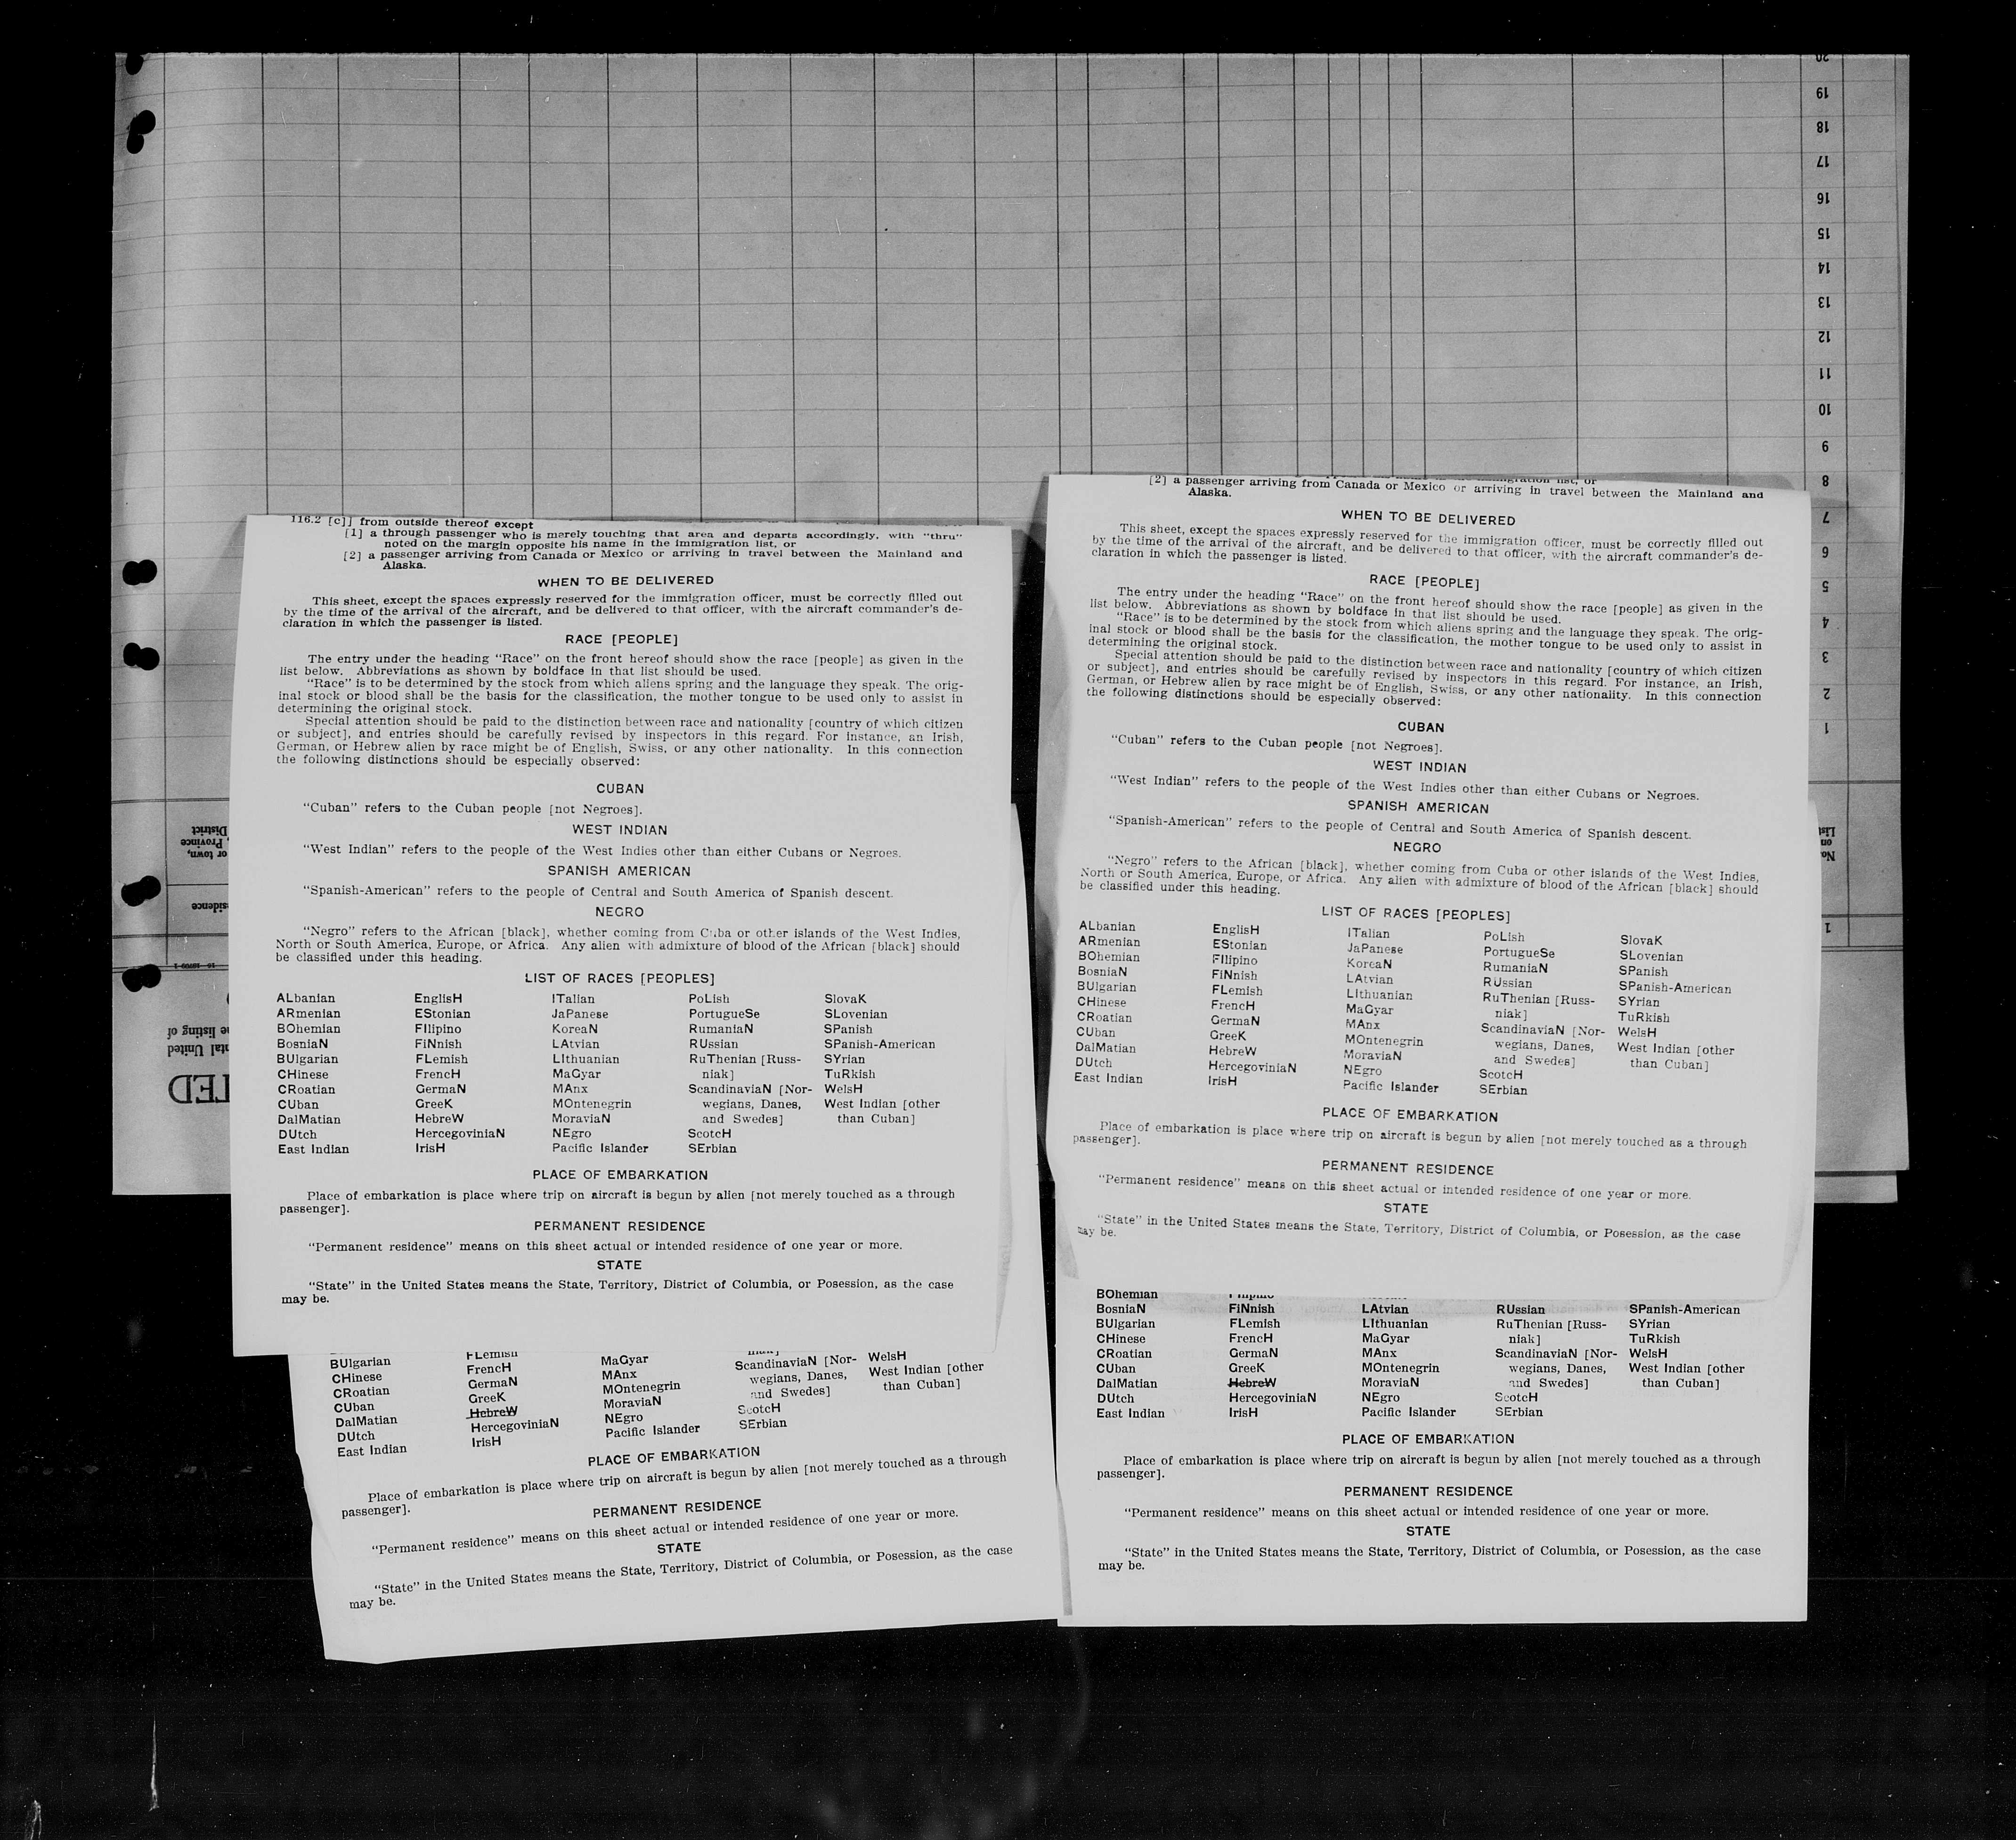 20
19
18
17
16
15
14
13
12
11
10
9
8
7
6
5
4
3
2
1
No.
on
List
1
District
, Province
or town,
sidence
16—19709-1
he listing of
ntal United
TED
116.2 [c]] from outside thereof except
[1] a through passenger who is merely touching that area and departs accordingly, with "thru"
noted on the margin opposite his name in the immigration list, or
[2] a passenger arriving from Canada or Mexico or arriving in travel between the Mainland and
Alaska.
WHEN TO BE DELIVERED
This sheet, except the spaces expressly reserved for the immigration officer, must be correctly filled out
by the time of the arrival of the aircraft, and be delivered to that officer, with the aircraft commander's de-
claration in which the passenger is listed.
RACE [PEOPLE]
The entry under the heading "Race" on the front hereof should show the race [people] as given in the
list below. Abbreviations as shown by boldface in that list should be used.
"Race" is to be determined by the stock from which aliens spring and the language they speak. The orig-
inal stock or blood shall be the basis for the classification, the mother tongue to be used only to assist in
determining the original stock.
Special attention should be paid to the distinction between race and nationality [country of which citizen
or subject], and entries should be carefully revised by inspectors in this regard. For instance, an Irish,
German, or Hebrew alien by race might be of English, Swiss, or any other nationality. In this connection
the following distinctions should be especially observed:
CUBAN
"Cuban" refers to the Cuban people [not Negroes].
WEST INDIAN
"West Indian" refers to the people of the West Indies other than either Cubans or Negroes.
SPANISH AMERICAN
"Spanish-American" refers to the people of Central and South America of Spanish descent.
NEGRO
"Negro" refers to the African [black], whether coming from Cuba or other islands of the West Indies,
North or South America, Europe, or Africa. Any alien with admixture of blood of the African [black] should
be classified under this heading.
LIST OF RACES [PEOPLES]
ALbanian EnglisH ITalian PoLish SlovaK
ARmenian EStonian JaPanese PortugueSe SLovenian
BOhemian FIlipino KoreaN RumaniaN SPanish
BosniaN FiNnish LAtvian RUssian SPanish-American
BUlgarian FLemish LIthuanian RuThenian [Russ- SYrian
CHinese FrencH MaGyar niak] TuRkish
CRoatian GermaN MAnx ScandinaviaN [Nor- WelsH
CUban GreeK MOntenegrin wegians, Danes, West Indian [other
DalMatian HebreW MoraviaN and Swedes] than Cuban]
DUtch HercegoviniaN NEgro ScotcH
East Indian IrisH Pacific Islander SErbian
PLACE OF EMBARKATION
Place of embarkation is place where trip on aircraft is begun by alien [not merely touched as a through
passenger].
PERMANENT RESIDENCE
"Permanent residence" means on this sheet actual or intended residence of one year or more.
STATE
"State" in the United States means the State, Territory, District of Columbia, or Posession, as the case
may be.
FLemish
BUlgarian FrencH MaGyar ScandinaviaN [Nor- WelsH
CHinese GermaN MAnx wegians, Danes, West Indian [other
CRoatian GreeK MOntenegrin and Swedes] than Cuban]
CUban HebreW MoraviaN ScotcH
DalMatian HercegoviniaN NEgro SErbian
DUtch IrisH Pacific Islander
East Indian
PLACE OF EMBARKATION
Place of embarkation is place where trip on aircraft is begun by alien [not merely touched as a through
passenger].
PERMANENT RESIDENCE
"Permanent residence" means on this sheet actual or intended residence of one year or more.
STATE
"State" in the United States means the State, Territory, District of Columbia, or Posession, as the case
may be.
immigration list, or
[2] a passenger arriving from Canada or Mexico or arriving in travel between the Mainland and
Alaska.
WHEN TO BE DELIVERED
This sheet, except the spaces expressly reserved for the immigration officer, must be correctly filled out
by the time of the arrival of the aircraft, and be delivered to that officer, with the aircraft commander's de-
claration in which the passenger is listed.
RACE [PEOPLE]
The entry under the heading "Race" on the front hereof should show the race [people] as given in the
list below. Abbreviations as shown by boldface in that list should be used.
"Race" is to be determined by the stock from which aliens spring and the language they speak. The orig-
inal stock or blood shall be the basis for the classification, the mother tongue to be used only to assist in
determining the original stock.
Special attention should be paid to the distinction between race and nationality [country of which citizen
or subject], and entries should be carefully revised by inspectors in this regard. For instance, an Irish,
German, or Hebrew alien by race might be of English, Swiss, or any other nationality. In this connection
the following distinctions should be especially observed:
CUBAN
"Cuban" refers to the Cuban people [not Negroes].
WEST INDIAN
"West Indian" refers to the people of the West Indies other than either Cubans or Negroes.
SPANISH AMERICAN
"Spanish-American" refers to the people of Central and South America of Spanish descent.
NEGRO
"Negro" refers to the African [black], whether coming from Cuba or other islands of the West Indies,
North or South America, Europe, or Africa. Any alien with admixture of blood of the African [black] should
be classified under this heading.
LIST OF RACES [PEOPLES]
ALbanian EnglisH ITalian PoLish SlovaK
ARmenian EStonian JaPanese PortugueSe SLovenian
BOhemian FIlipino KoreaN RumaniaN SPanish
BosniaN FiNnish LAtvian RUssian SPanish-American
BUlgarian FLemish LIthuanian RuThenian [Russ- SYrian
CHinese FrencH MaGyar niak] TuRkish
CRoatian GermaN MAnx ScandinaviaN [Nor- WelsH
CUban GreeK MOntenegrin wegians, Danes, West Indian [other
DalMatian HebreW MoraviaN and Swedes] than Cuban]
DUtch HercegoviniaN NEgro ScotcH
East Indian IrisH Pacific Islander SErbian
PLACE OF EMBARKATION
Place of embarkation is place where trip on aircraft is begun by alien [not merely touched as a through
passenger].
PERMANENT RESIDENCE
"Permanent residence" means on this sheet actual or intended residence of one year or more.
STATE
"State" in the United States means the State, Territory, District of Columbia, or Posession, as the case
may be.
BOhemian FIlipino
BosniaN FiNnish LAtvian RUssian SPanish-American
BUlgarian FLemish LIthuanian RuThenian [Russ- SYrian
CHinese FrencH MaGyar niak] TuRkish
CRoatian GermaN MAnx ScandinaviaN [Nor- WelsH
CUban GreeK MOntenegrin wegians, Danes, West Indian [other
DalMatian HebreW MoraviaN and Swedes] than Cuban]
DUtch HercegoviniaN NEgro ScotcH
East Indian IrisH Pacific Islander SErbian
PLACE OF EMBARKATION
Place of embarkation is place where trip on aircraft is begun by alien [not merely touched as a through
passenger].
PERMANENT RESIDENCE
"Permanent residence" means on this sheet actual or intended residence of one year or more.
STATE
"State" in the United States means the State, Territory, District of Columbia, or Posession, as the case
may be.